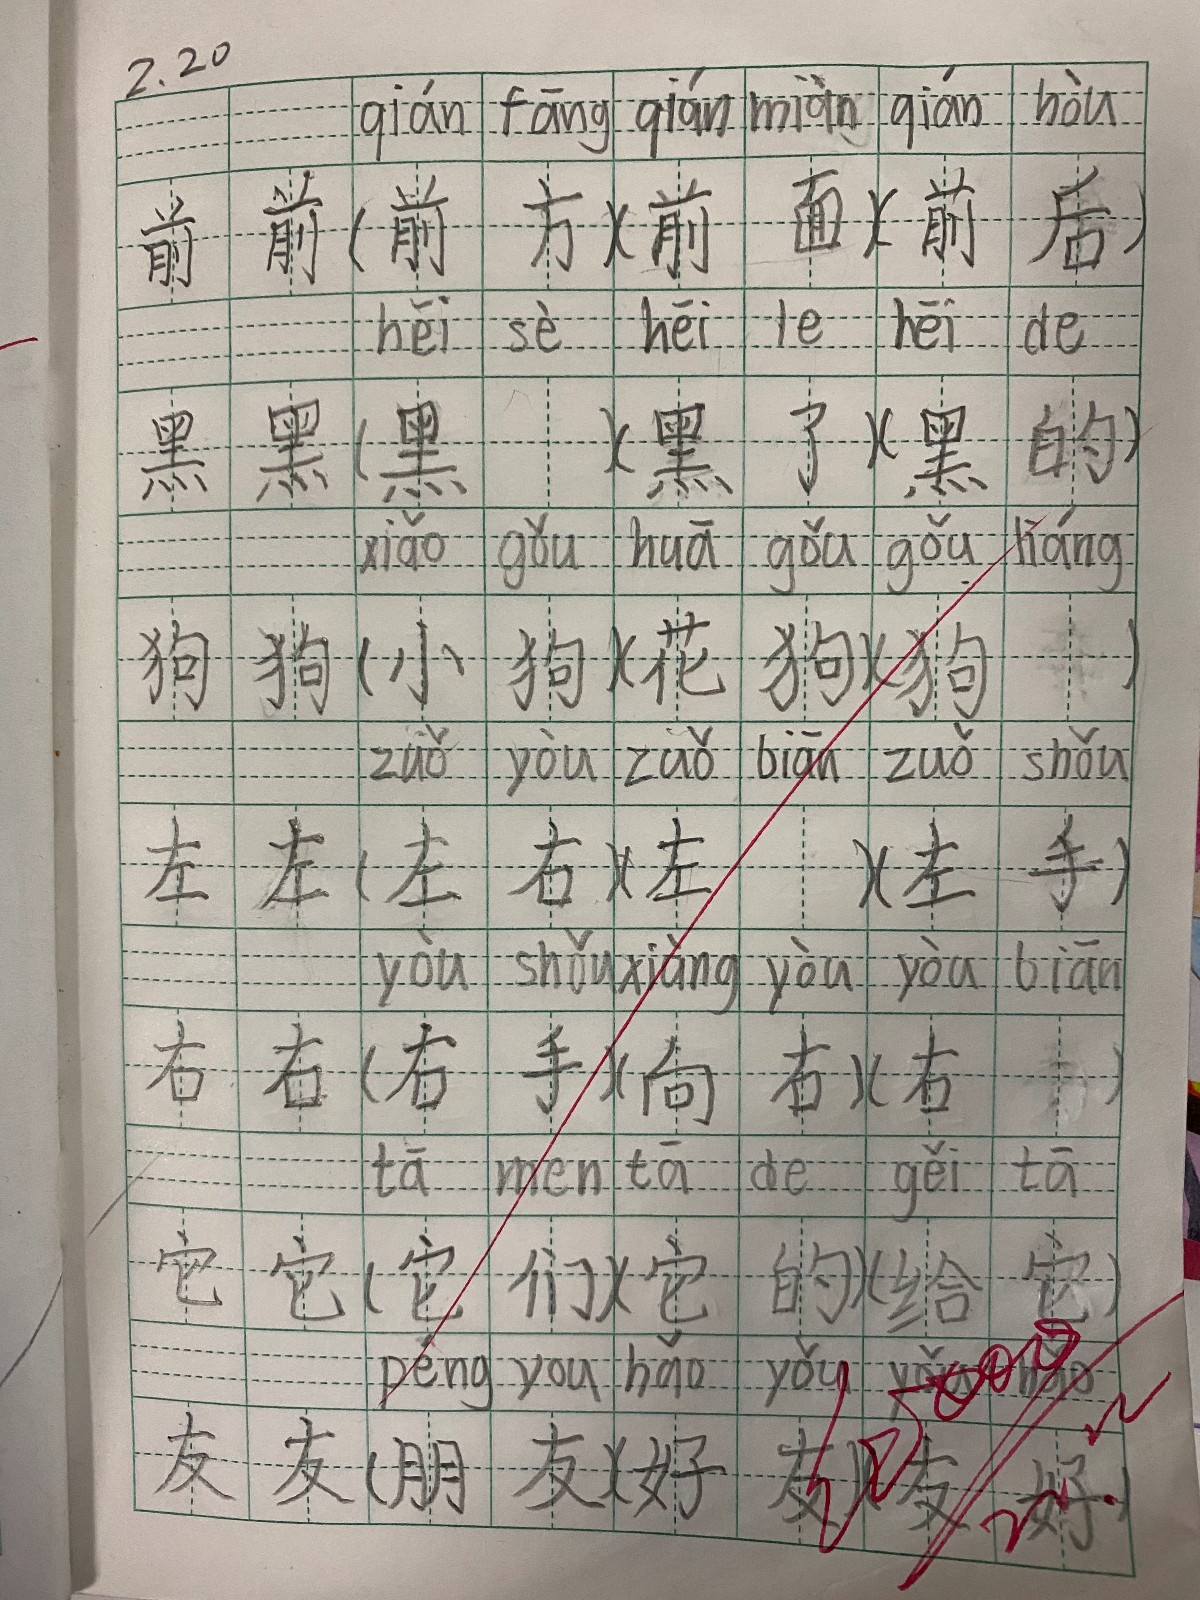 2.20
qián fāng qián miàn qián hòu
前 前 (前 方)(前 面)(前 后)
hēi sè hēi le hēi de
黑 黑 (黑 )(黑 了)(黑 的)
xiǎo gǒu huā gǒu gǒu liáng
狗 狗 (小 狗)(花 狗)(狗 )
zuǒ yòu zuǒ biān zuǒ shǒu
左 左 (左 右)(左 )(左 手)
yòu shǒu xiàng yòu yòu biān
右 右 (右 手)(向 右)(右 )
tā men tā de gěi tā
它 它 (它 们)(它 的)(给 它)
péng you hǎo yǒu yǒu hǎo
友 友 (朋 友)(好 友)(友 好)